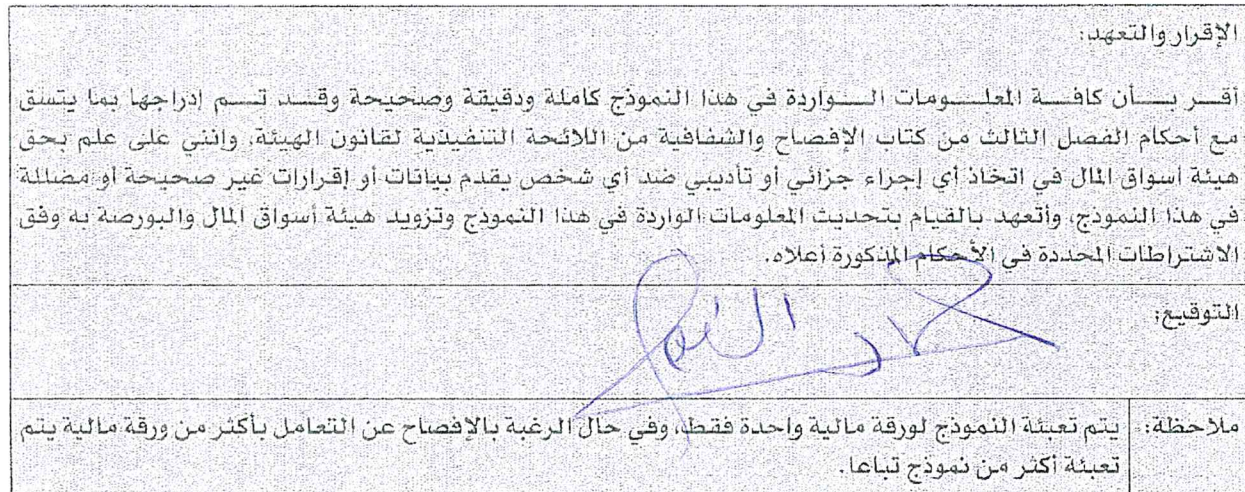 الإقرار والتعهد:
أقـــر بـــأن كافـــة المعلـــومات الـــواردة في هذا النموذج كاملة ودقيقة وصحيحة وقـــد تـــم إدراجها بما يتسق
مع أحكام الفصل الثالث من كتاب الإفصاح والشفافية من اللائحة التنفيذية لقانون الهيئة، وإنني على علم بحق
هيئة أسواق المال في اتخاذ أي إجراء جزائي أو تأديبي ضد أي شخص يقدم بيانات أو إقرارات غير صحيحة أو مضللة
في هذا النموذج، وأتعهد بالقيام بتحديث المعلومات الواردة في هذا النموذج وتزويد هيئة أسواق المال والبورصة به وفق
الاشتراطات المحددة في الأحكام المذكورة أعلاه.
التوقيع:
ملاحظة: يتم تعبئة النموذج لورقة مالية واحدة فقط، وفي حال الرغبة بالإفصاح عن التعامل بأكثر من ورقة مالية يتم
تعبئة أكثر من نموذج تباعا.